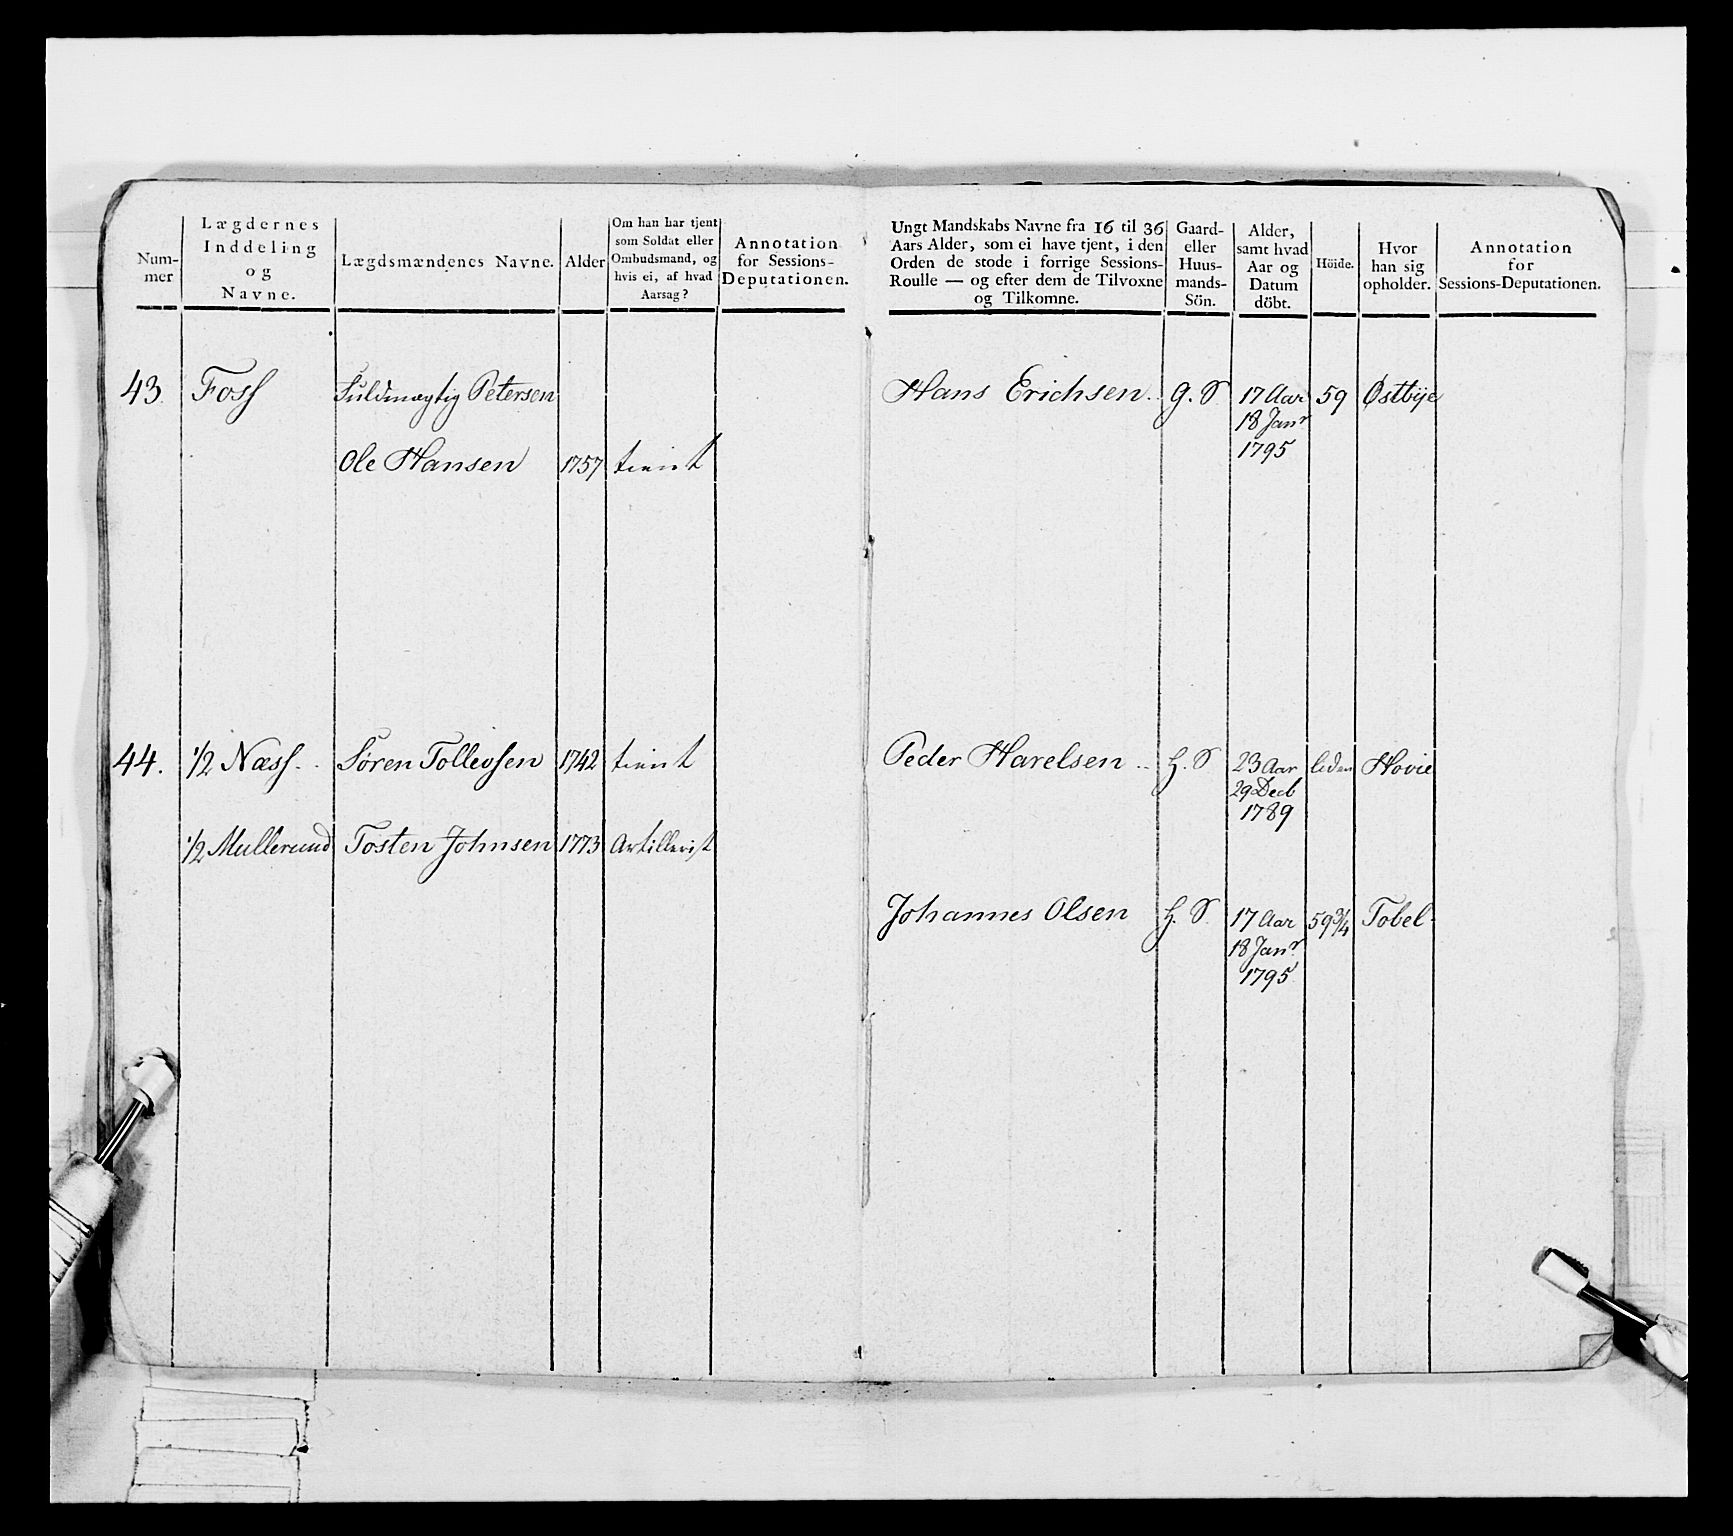 Num-
mer
Lægdernes
Inddeling
og
Navne.
Lægdsmændenes Navne.
Alder
Om han har tjent
som Soldat eller
Ombudsmand, og
hvis ei, af hvad
Aarsag?
Annotation
for Sessions-
Deputationen.
Ungt Mandskabs Navne fra 16 til 36
Aars Alder, som ei have tjent, i den
Orden de stode i forrige Sessions-
Roulle — og efter dem de Tilvoxne
og Tilkomne.
Gaard-
eller
Huus-
mands-
Sön.
Alder,
samt hvad
Aar og
Datum
döbt.
Höide.
Hvor
han sig
opholder.
Annotation
for
Sessions-Deputationen.
43 Foss Fuldmægtig Petersen
Ole Hansen 1757 tient
Hans Erichsen G. S 17 Aar 59 Østbye
18 Janr
1795
44. 1/2 Næss Søren Tollevsen 1742 tient
1/2 Mullerund Tosten Johnsen 1773 Artillerist
Peder Harelsen H. S 23 Aar liden Hovie
29 Decb
1789
Johannes Olsen H. S 17 Aar 59 3/4 Tobel
18 Janr
1795